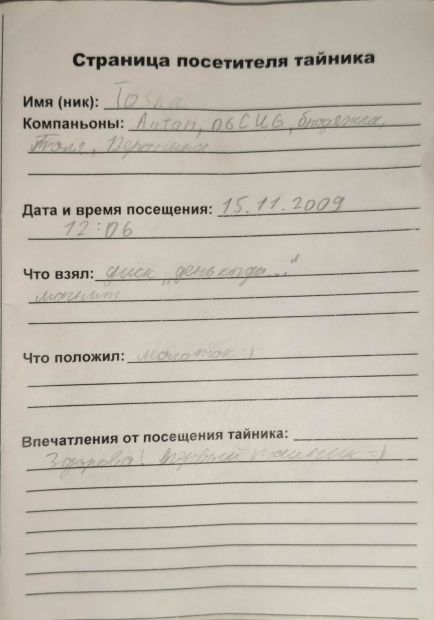 Страница посетителя тайника
Имя (ник): Tosha
Компаньоны: Антон,
Вероника
Дата и время посещения: 15.11.2009
12:06
Что взял: диск „день когда..."
магнит
Что положил: молоток :)
Впечатления от посещения тайника:
Здорово! Первый тайник =)